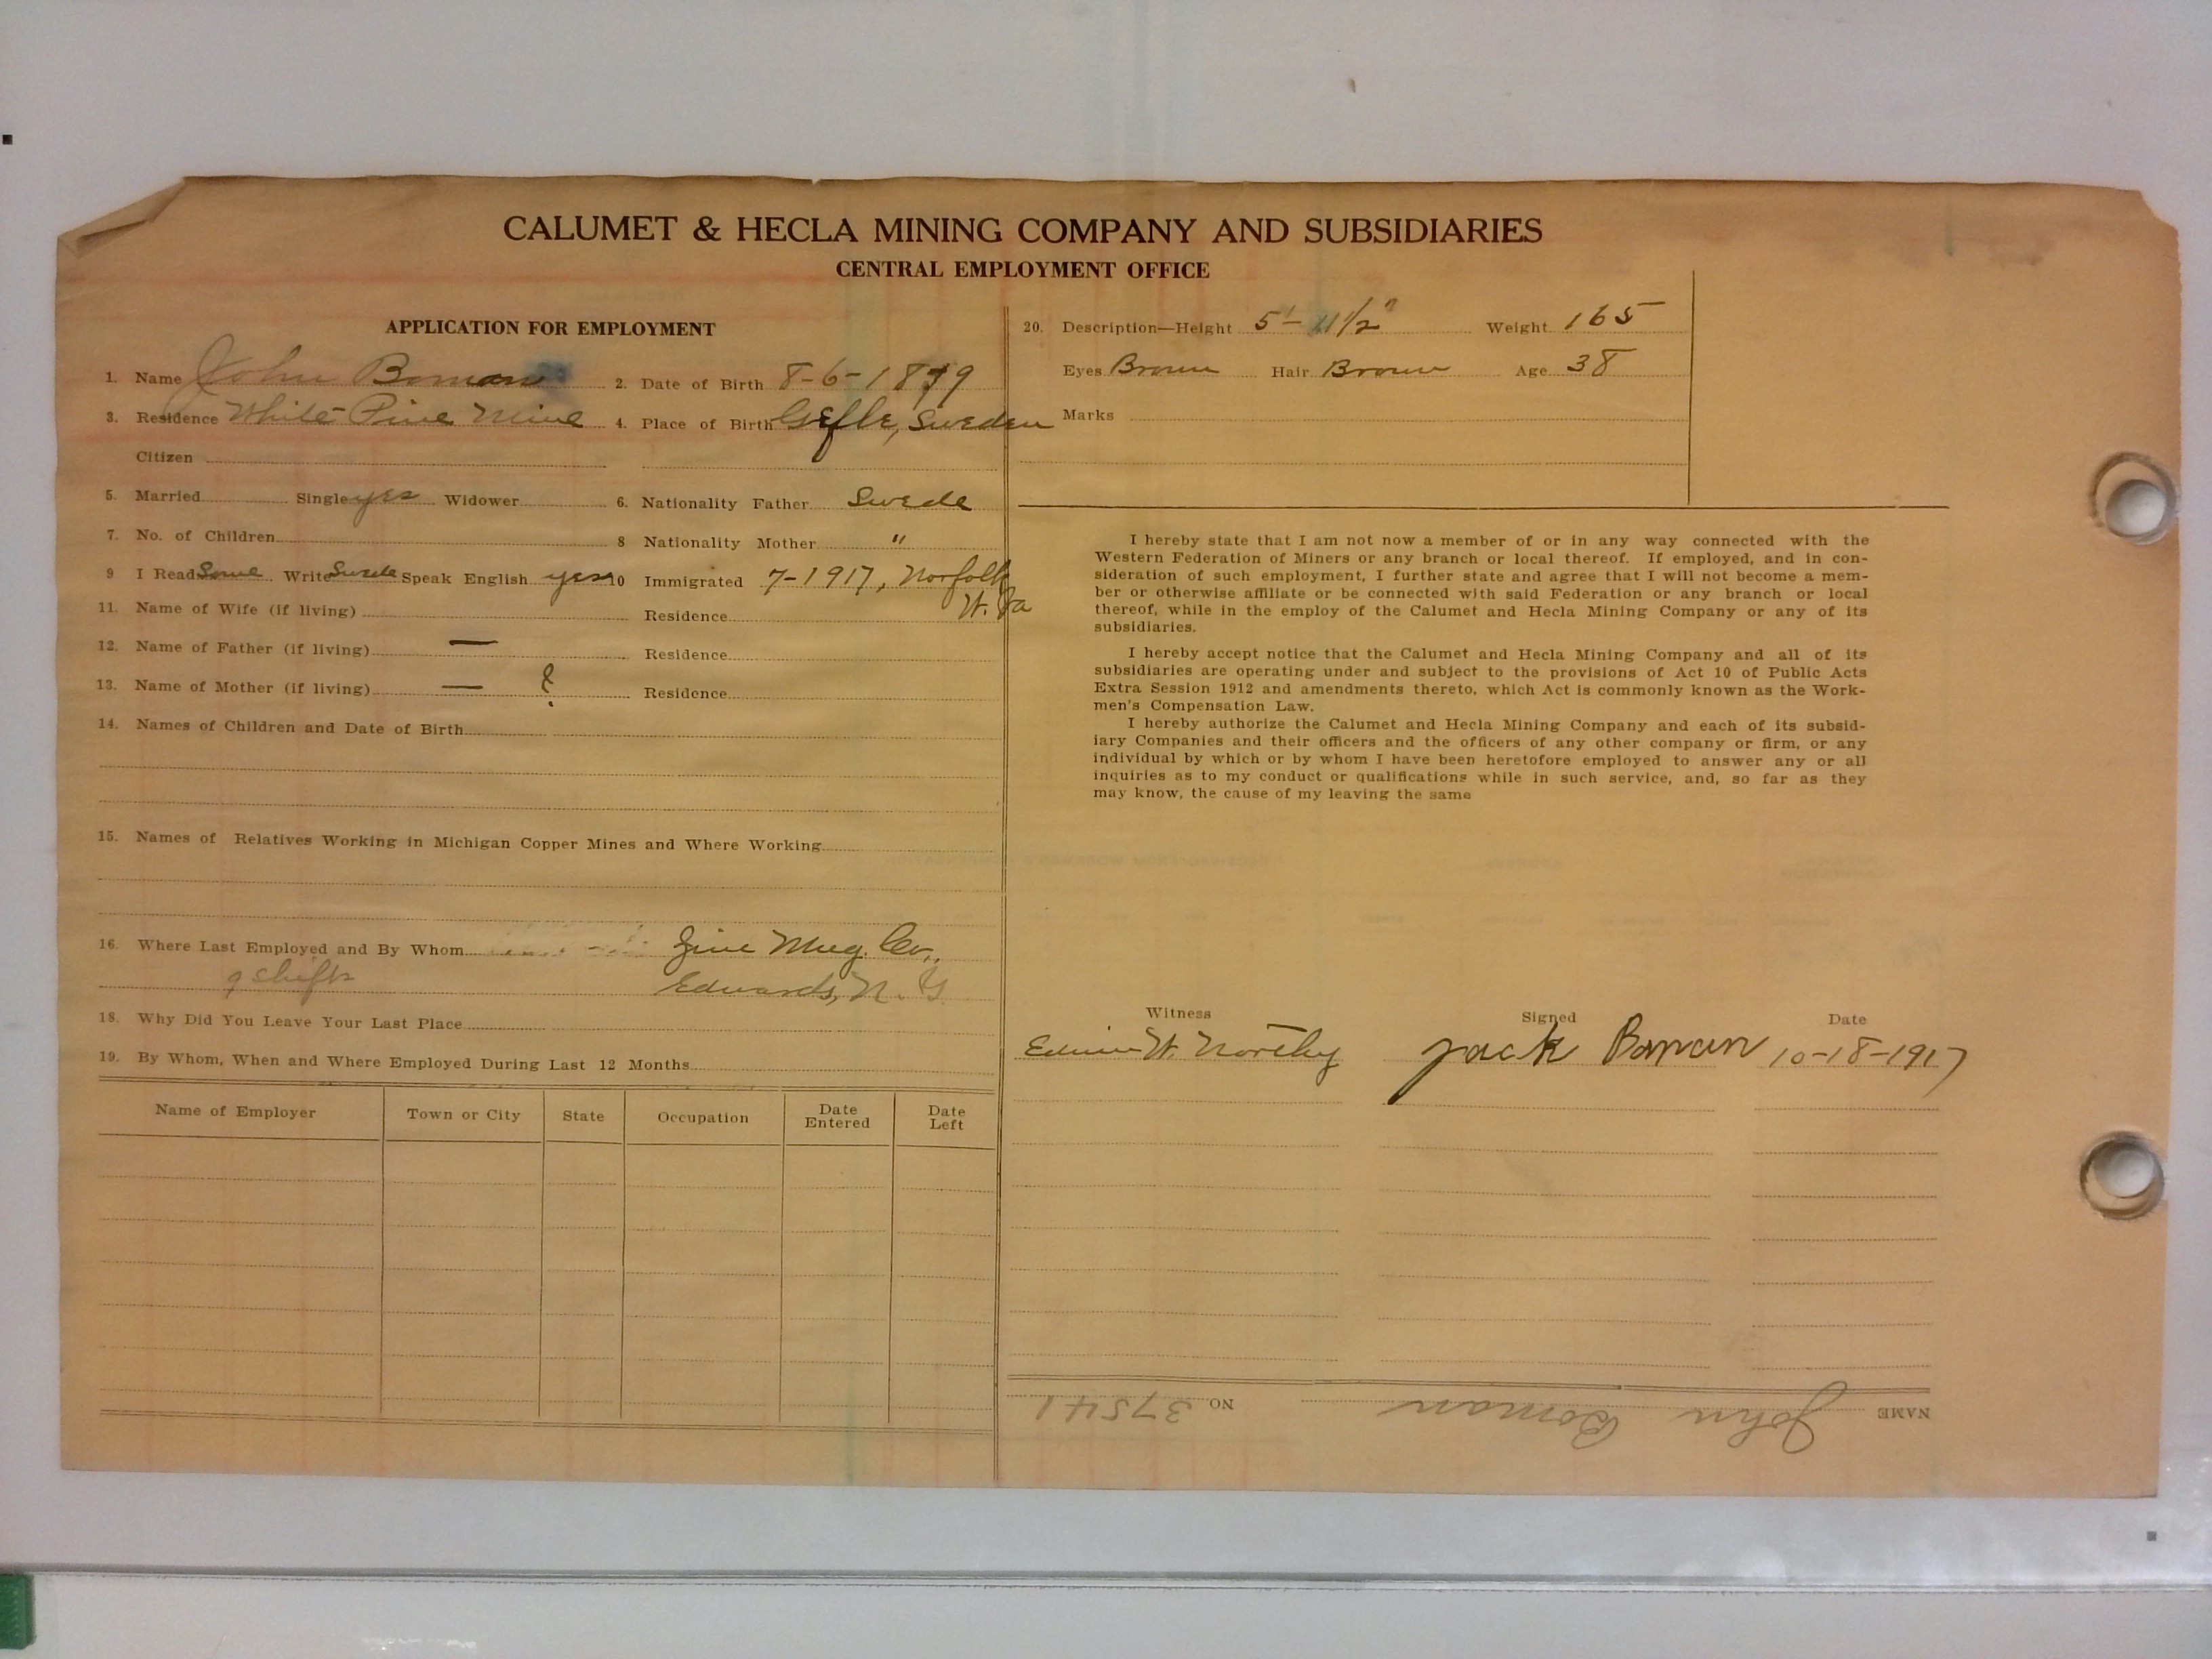 CALUMET & HECLA MINING COMPANY AND SUBSIDIARIES
CENTRAL EMPLOYMENT OFFICE
APPLICATION FOR EMPLOYMENT
1. Name John Boman 2. Date of Birth 8-6-1879
3. Residence White Pine Mine 4. Place of Birth Gefle, Sweden
Citizen
5. Married Single yes Widower 6. Nationality Father Swede
7. No. of Children 8 Nationality Mother "
9 I Read Some Write Swede Speak English yes 10 Immigrated 7-1917, Norfolk
W. Va
11. Name of Wife (if living) Residence
12. Name of Father (if living) — Residence
13. Name of Mother (if living) — ? Residence
14. Names of Children and Date of Birth
15. Names of Relatives Working in Michigan Copper Mines and Where Working
16. Where Last Employed and By Whom Zinc Mng. Co.,
9 shifts Edwards, N. Y.
18. Why Did You Leave Your Last Place
19. By Whom, When and Where Employed During Last 12 Months
Name of Employer Town or City State Occupation Date Entered Date Left
20. Description—Height 5'- 11 1/2" Weight 165
Eyes Brown Hair Brown Age 38
Marks
I hereby state that I am not now a member of or in any way connected with the
Western Federation of Miners or any branch or local thereof. If employed, and in con-
sideration of such employment, I further state and agree that I will not become a mem-
ber or otherwise affiliate or be connected with said Federation or any branch or local
thereof, while in the employ of the Calumet and Hecla Mining Company or any of its
subsidiaries.
I hereby accept notice that the Calumet and Hecla Mining Company and all of its
subsidiaries are operating under and subject to the provisions of Act 10 of Public Acts
Extra Session 1912 and amendments thereto, which Act is commonly known as the Work-
men's Compensation Law.
I hereby authorize the Calumet and Hecla Mining Company and each of its subsid-
iary Companies and their officers and the officers of any other company or firm, or any
individual by which or by whom I have been heretofore employed to answer any or all
inquiries as to my conduct or qualifications while in such service, and, so far as they
may know, the cause of my leaving the same
Witness Signed Date
Edwin W. Northey Jack Boman 10-18-1917
NAME John Boman NO. 37541